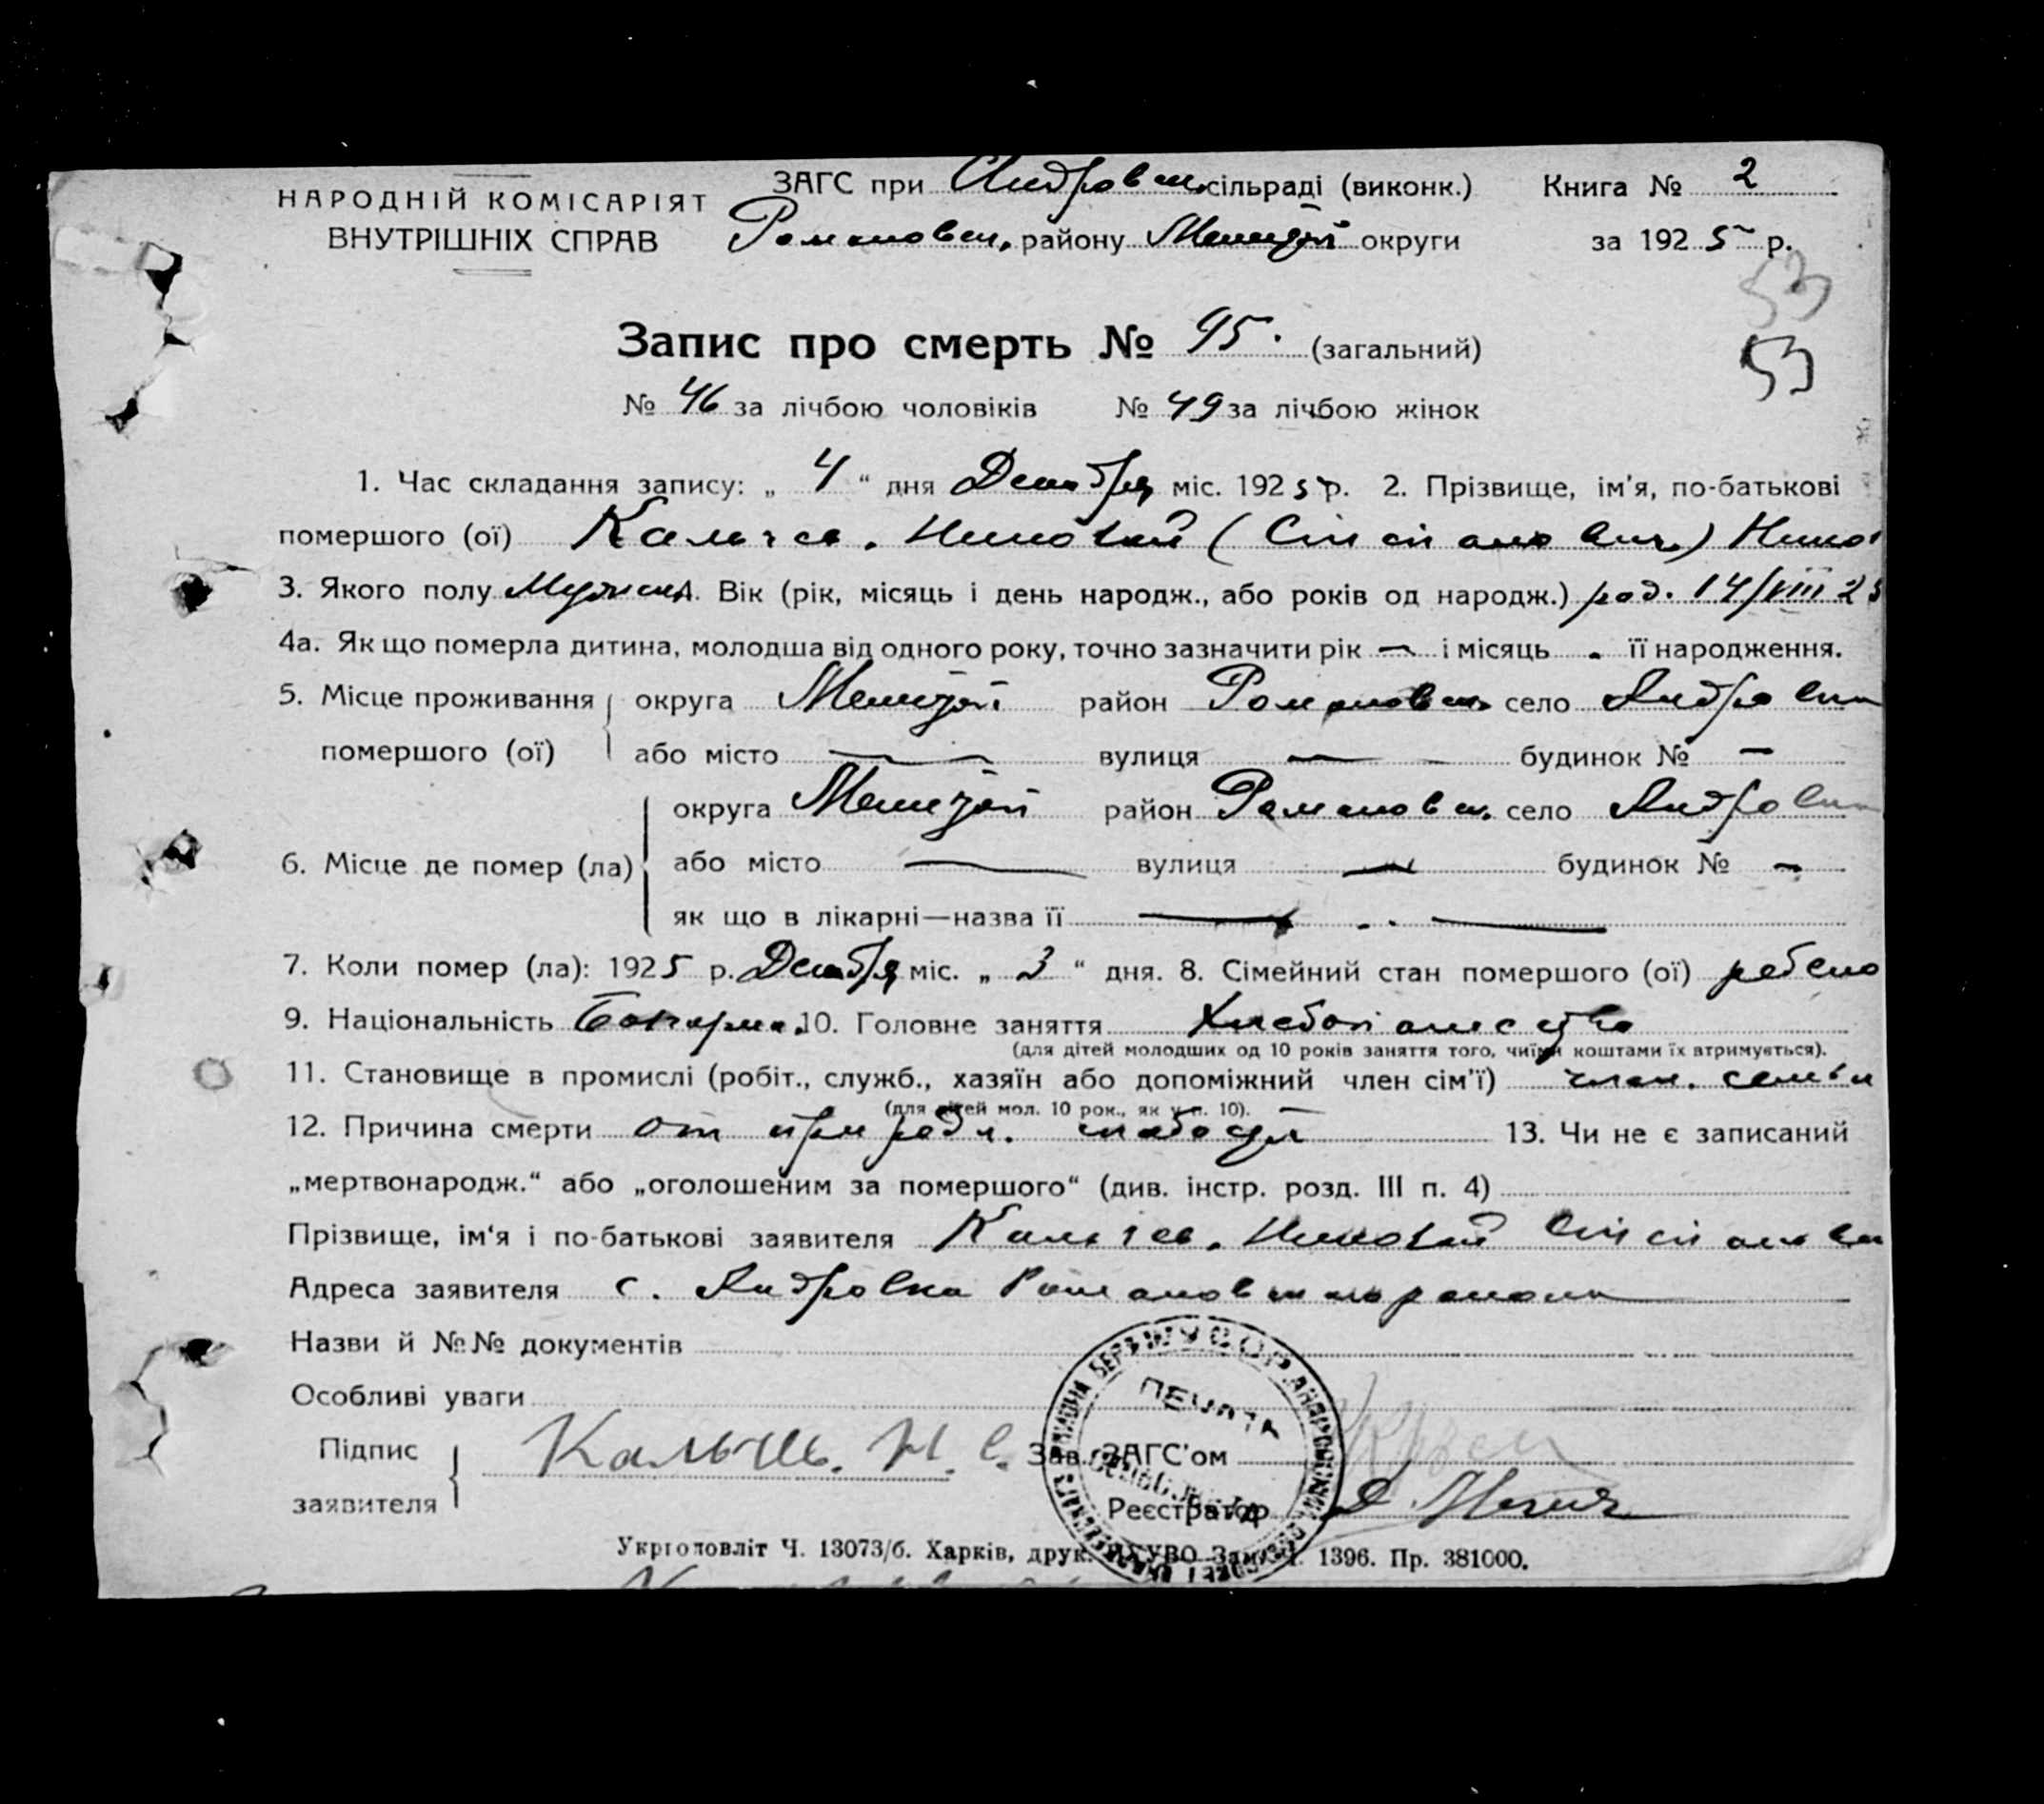 НАРОДНІЙ КОМІСАРІЯТ
ВНУТРІШНІХ СПРАВ
ЗАГС при Андровск. сільраді (виконк.) Книга № 2
Романовск. району округи за 1925 р.
53
53
Запис про смерть № 95. (загальний)
№ 46 за лічбою чоловіків № 49 за лічбою жінок
1. Час складання запису: „ 4 “ дня Декабря міс. 1925 р. 2. Прізвище, ім'я, по-батькові
помершого (ої) Кальчев. Николай (
3. Якого полу Мужска. Вік (рік, місяць і день народж., або років од народж.) род. 14/VIII 25
4а. Як що померла дитина, молодша від одного року, точно зазначити рік — і місяць . її народження.
5. Місце проживання округа район Романовск. село Андровка
помершого (ої) або місто — вулиця — будинок № —
округа район Романовск. село Андровка
6. Місце де помер (ла) або місто — вулиця — будинок № —
як що в лікарні—назва її —
7. Коли помер (ла): 1925 р. Декабря міс. „ 3 “ дня. 8. Сімейний стан помершого (ої) ребено
9. Національність Болгарин. 10. Головне заняття Хлебопашество
(для дітей молодших од 10 років заняття того, чиїми коштами їх втримується).
11. Становище в промислі (робіт., служб., хазяїн або допоміжний член сім'ї) член. семьи
(для дітей мол. 10 рок., як у п. 10).
12. Причина смерти от природн. слабости 13. Чи не є записаний
„мертвонародж.“ або „оголошеним за помершого“ (див. інстр. розд. III п. 4)
Прізвище, ім'я і по-батькові заявителя Кальчев. Николай
Адреса заявителя с. Андровка Романовского района
Назви й №№ документів
Особливі уваги
Підпис
заявителя Кальчев. Н. С.
Зав. ЗАГС'ом
Реєстратор
ПЕЧАТА
Укрголовліт Ч. 13073/б. Харків, друк. УВО Зам. Ч. 1396. Пр. 381000.